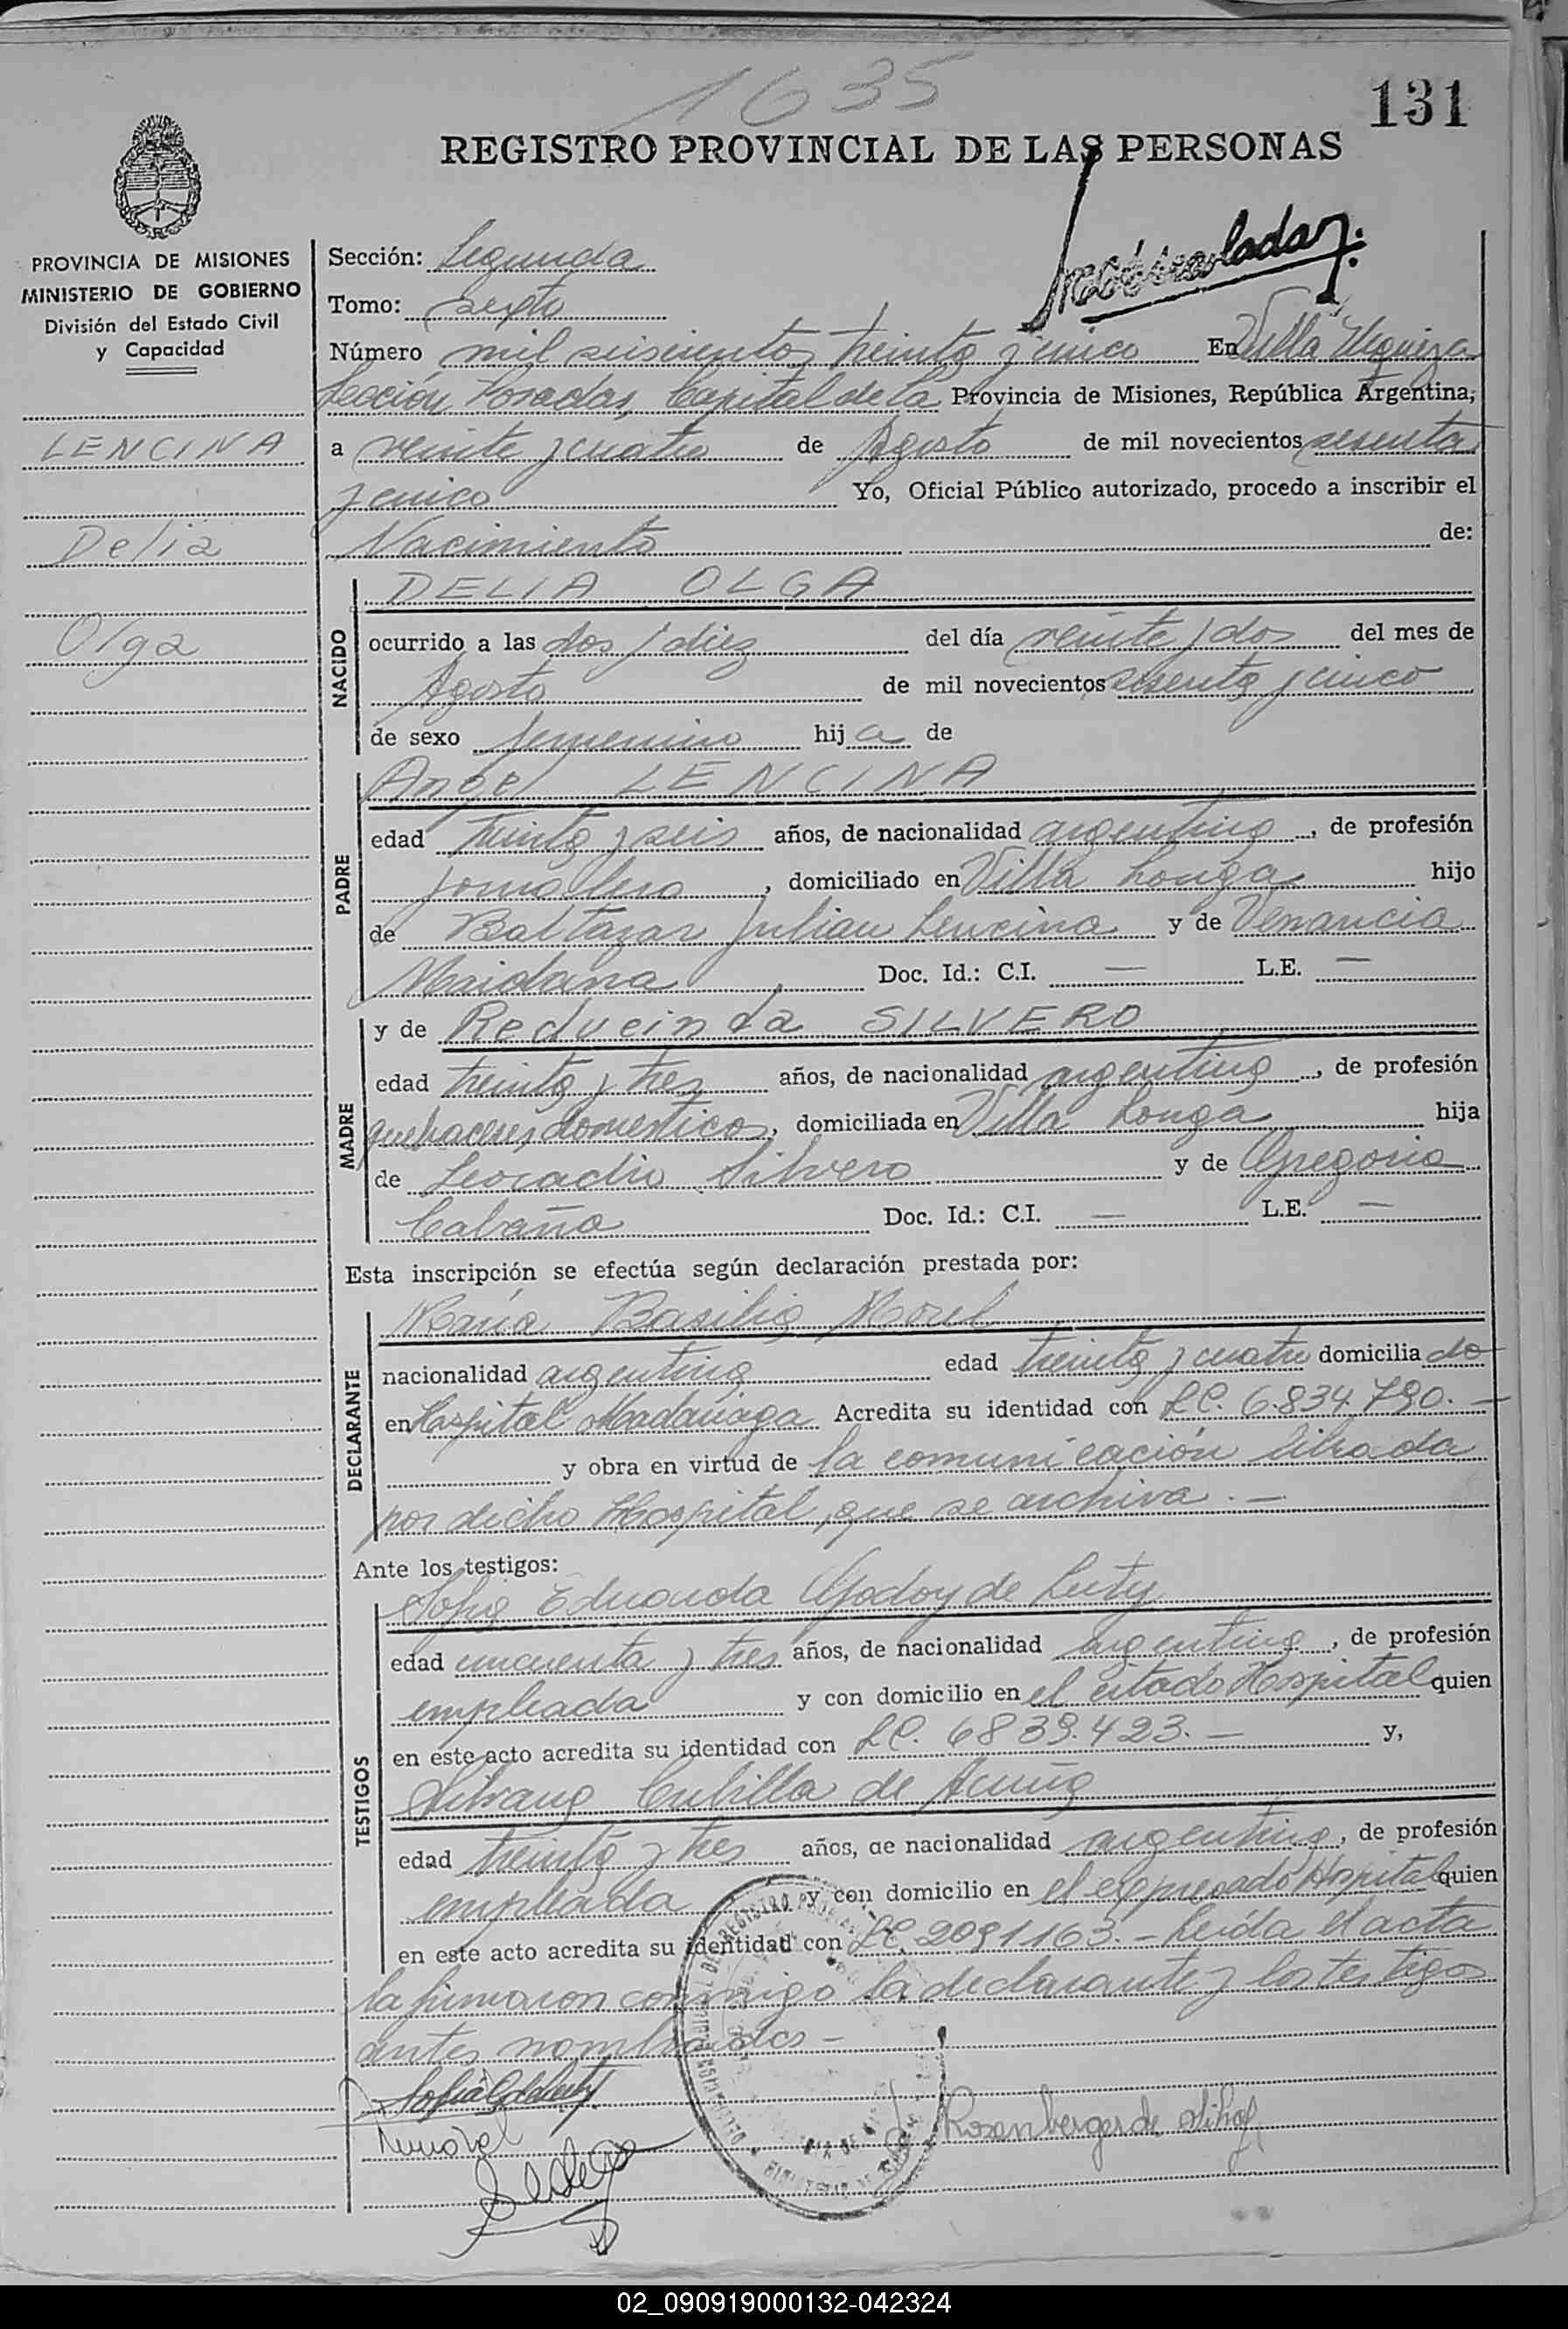 1635
131
REGISTRO PROVINCIAL DE LAS PERSONAS
PROVINCIA DE MISIONES
MINISTERIO DE GOBIERNO
División del Estado Civil
y Capacidad
LENCINA
Delia
Olga
Sección: Segunda
Tomo: Sexto
Número mil seiscientos treinta y cinco En Villa Urquiza
Sección Posadas, Capital de la Provincia de Misiones, República Argentina,
a veinte y cuatro de Agosto de mil novecientos sesenta
y cinco Yo, Oficial Público autorizado, procedo a inscribir el
Nacimiento de:
NACIDO
DELIA OLGA
ocurrido a las dos y diez del día veinte y dos del mes de
Agosto de mil novecientos sesenta y cinco
de sexo femenino hija de
PADRE
Angel LENCINA
edad treinta y seis años, de nacionalidad argentina, de profesión
jornalero, domiciliado en Villa Longa hijo
de Baltazar Julian Lencina y de Venancia
Maidana Doc. Id.: C.I. — L.E. —
MADRE
y de Reducinda SILVERO
edad treinta y tres años, de nacionalidad argentina, de profesión
quehaceres domesticos, domiciliada en Villa Longa hija
de Leocadio Silvero y de Gregoria
Cabaña Doc. Id.: C.I. — L.E. —
Esta inscripción se efectúa según declaración prestada por:
DECLARANTE
María Basilia Morel
nacionalidad argentina edad treinta y cuatro domiciliado
en Hospital Madariaga Acredita su identidad con LC. 6.834.790. —
y obra en virtud de la comunicación librada
por dicho Hospital, que se archiva. —
Ante los testigos:
TESTIGOS
Sofia Eduarda Godoy de Luty
edad cincuenta y tres años, de nacionalidad argentina, de profesión
empleada y con domicilio en el citado Hospital quien
en este acto acredita su identidad con LC. 6839.423. — y,
Silvana Cubilla de Acuña
edad treinta y tres años, de nacionalidad argentina, de profesión
empleada y con domicilio en el expresado Hospital quien
en este acto acredita su identidad con LC. 2091163. — Leída el acta
la firmaron conmigo la declarante y los testigos
antes nombrados —
Rosenberger de
02_090919000132-042324